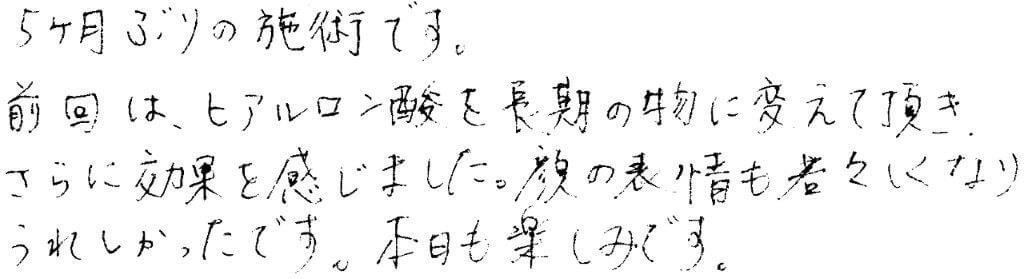 5ヶ月ぶりの施術です。
前回は、ヒアルロン酸を長期の物に変えて頂き、
さらに効果を感じました。顔の表情も若々しくなり
うれしかったです。本日も楽しみです。